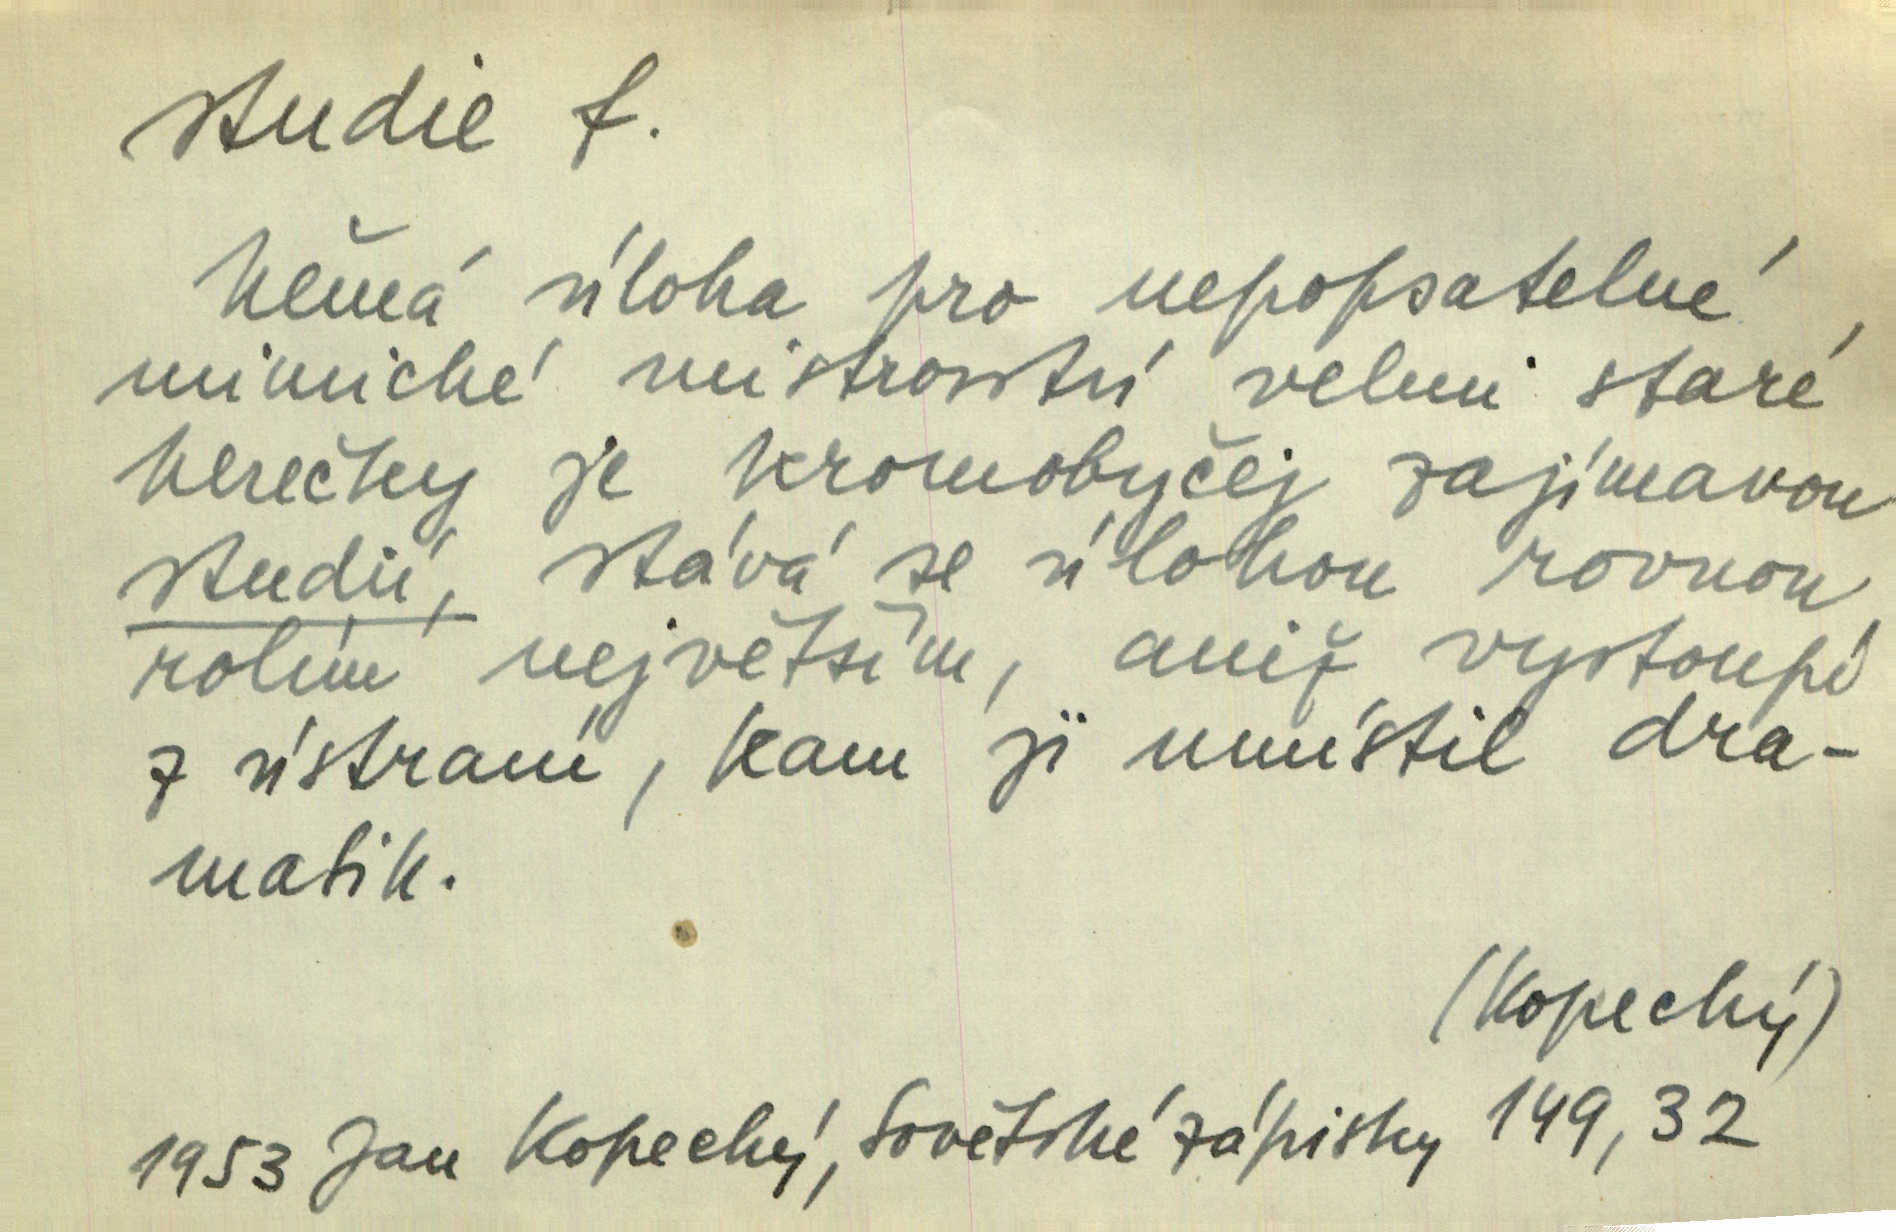 studie f.
Němá úloha pro nepopsatelné
mimické mistrovství velmi staré
herečky je kromobyčej zajímavou
studií, stává se úlohou rovnou
rolím největším, aniž vystoupí
z ústraní, kam ji umístil dra-
matik.
(Kopecký)
1953 Jan Kopecký, Sovětské zápisky 149, 32